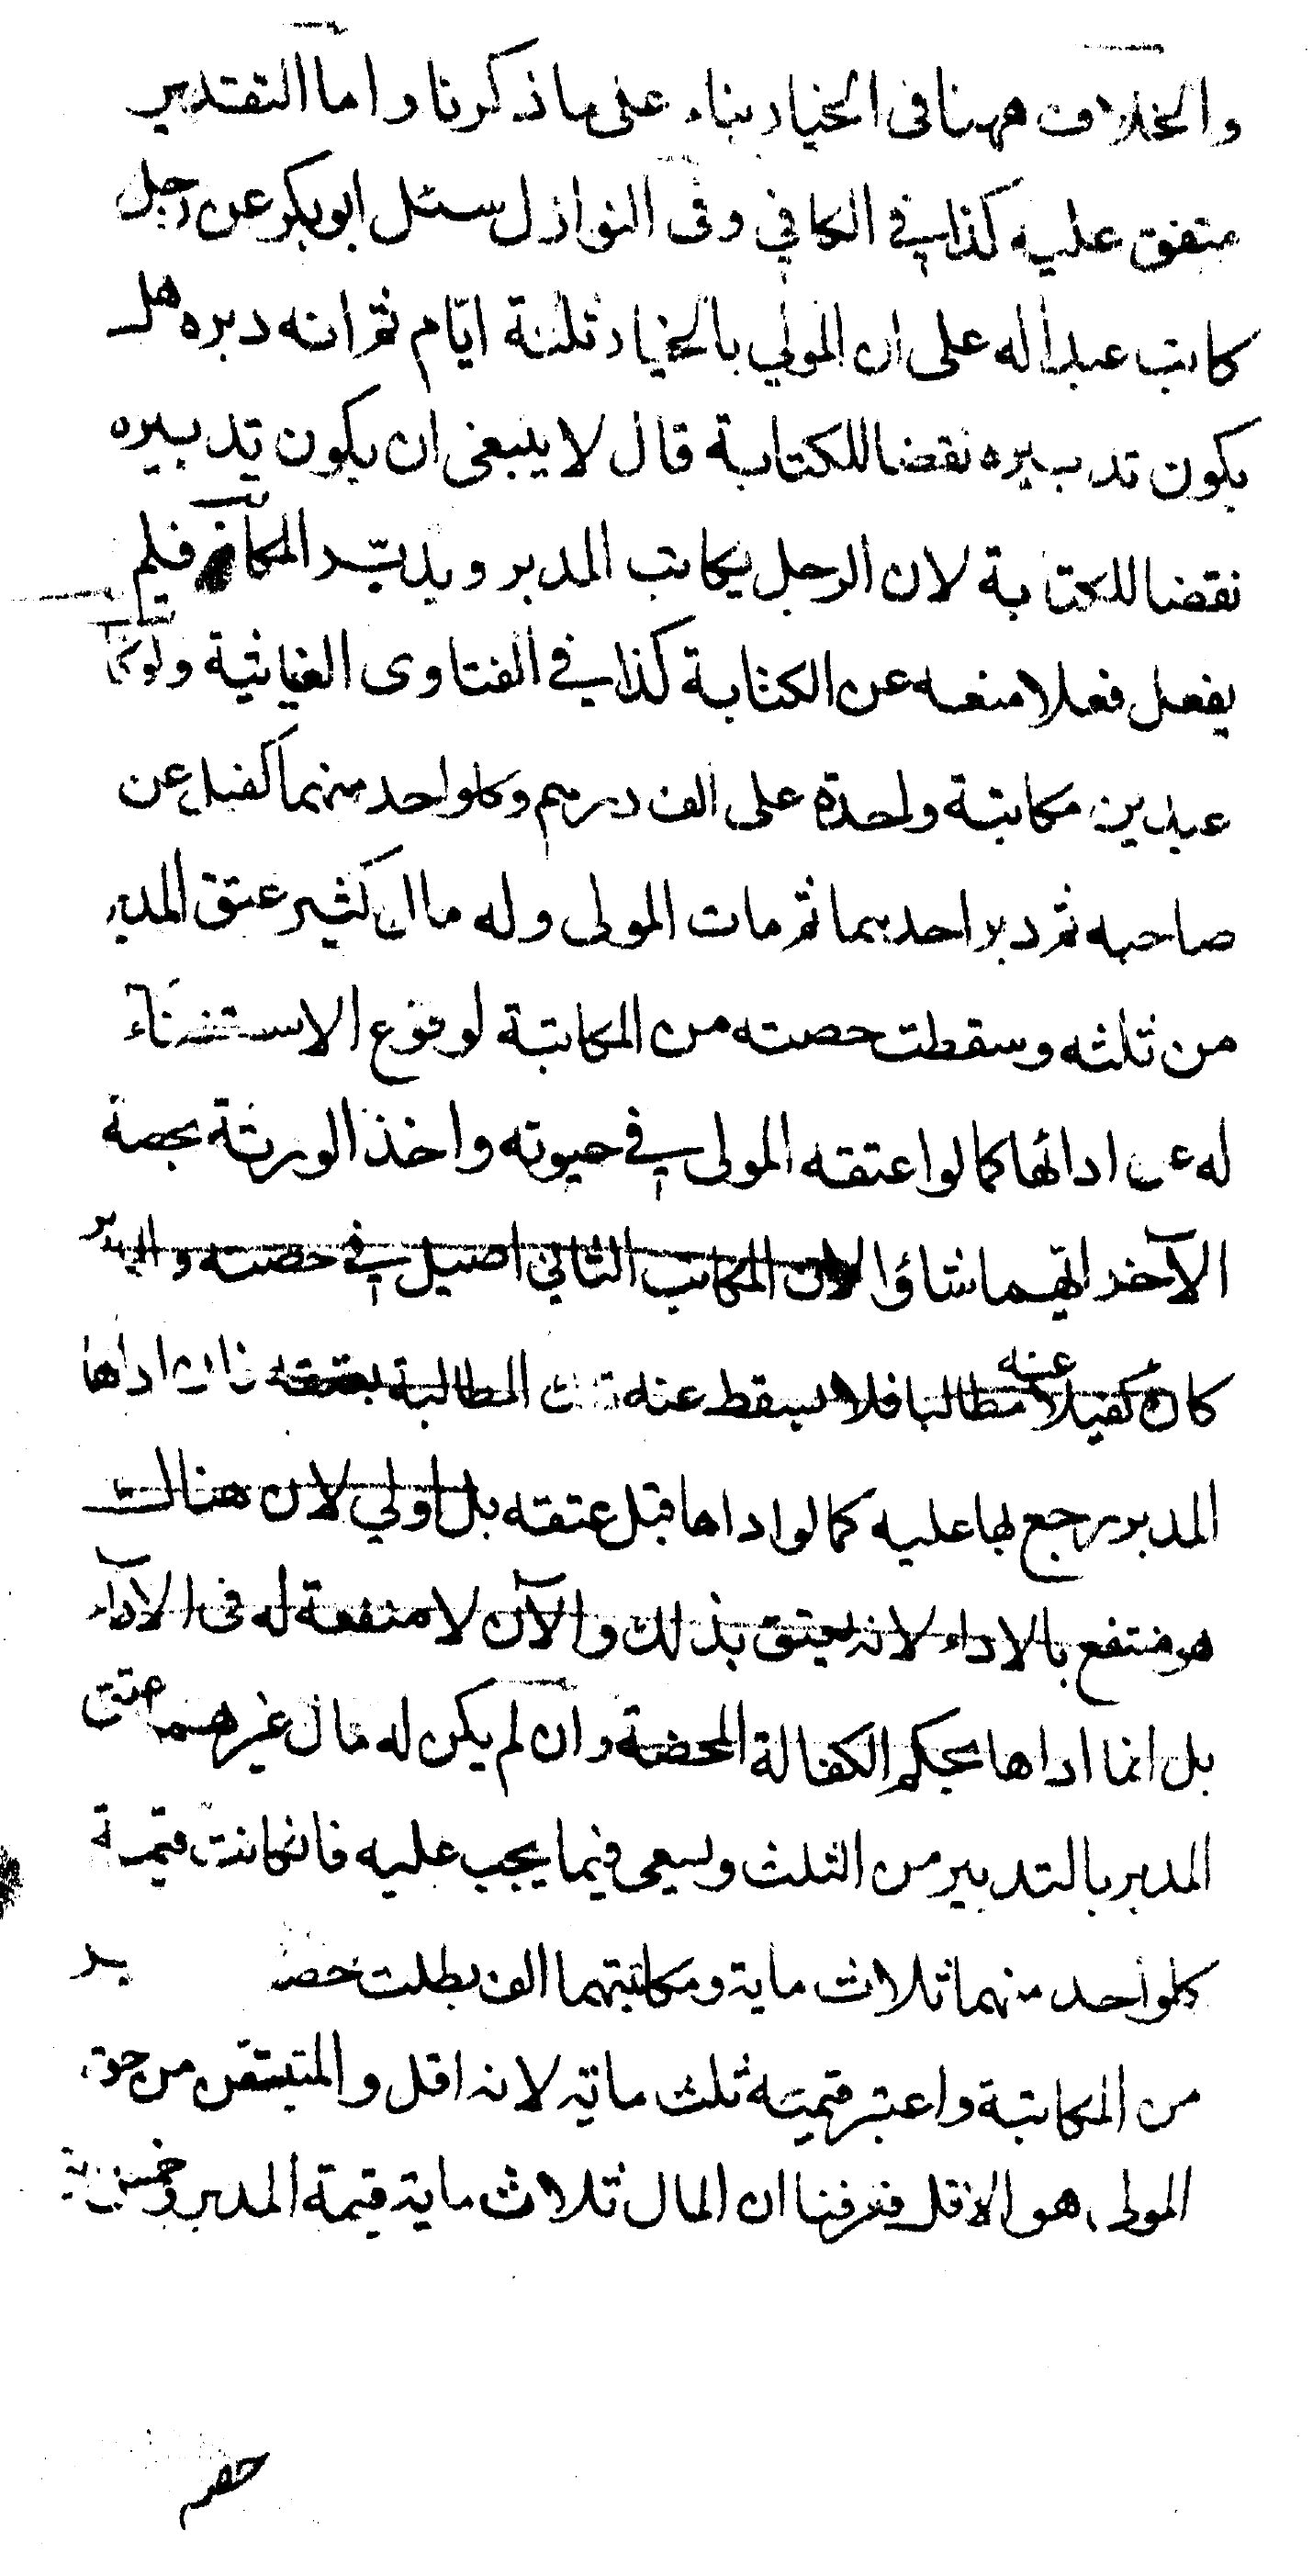 والخلاف ههنا فى الخيار بناء على ما ذكرنا واما التقدير
متفق عليه كذا في الكافي وفى النوازل سئل ابو بكر عن رجل
كاتب عبدا له على ان المولي بالخيار ثلثة ايّام ثم انه دبره هل
يكون تدبيره نقضا للكتابة قال لا ينبغى ان يكون تدبيره
نقضا للكتابة لان الرجل يكاتب المدبر ويدبّر المكاتب فلم
يفعل فعلا منعه عن الكتابة كذا في الفتاوى الغياثية ولو كاتب
عبدين مكاتبة واحدة على الف درهم وكلواحد منهما كفيل عن
صاحبه ثم دبر احدهما ثم مات المولى وله مال كثير عتق المدبر
من ثلثه وسقطت حصته من المكاتبة لوقوع الاستغناء
له عن ادائها كما لو اعتقه المولى في حيوته واخذ الورثة بحصة
الآخر ايهما شاؤا لان المكاتب الثاني اصيل في حصته والمدبر
كان كفيلا عنه مطالبا فلا يسقط عنه تلك المطالبة بعتقه فان اداها
المدبر رجع بها عليه كما لو اداها قبل عتقه بل اولي لان هناك
هو منتفع بالاداء لانه يعتق بذلك والآن لا منفعة له فى الاداء
بل انما اداها بحكم الكفالة المحضة وان لم يكن له مال غيرهما عتق
المدبر بالتدبير من الثلث ويسعى فيما يجب عليه فان كانت قيمة
كلواحد منهما ثلاث ماية ومكاتبتهما الف بطلت حصة
من المكاتبة واعتبر قيمته ثلث ماية لانه اقل والمتيقن من حق
المولى هو الاقل فعرفنا ان المال ثلاث ماية قيمة المدبر وخمس